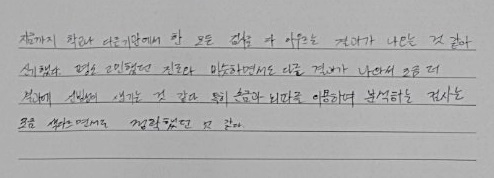 지금까지 학교나 다른기관에서 한 모든 검사를 다 아우르는 결과가 나오는 것 같아
신기했다. 평소 고민했던 진로와 비슷하면서도 다른 결과가 나와서 조금 더
부분에 신빙성이 생기는 것 같다. 특히 손금과 뇌파를 이용하여 분석하는 검사는
조금 색다르면서도 정확했던 것 같다.